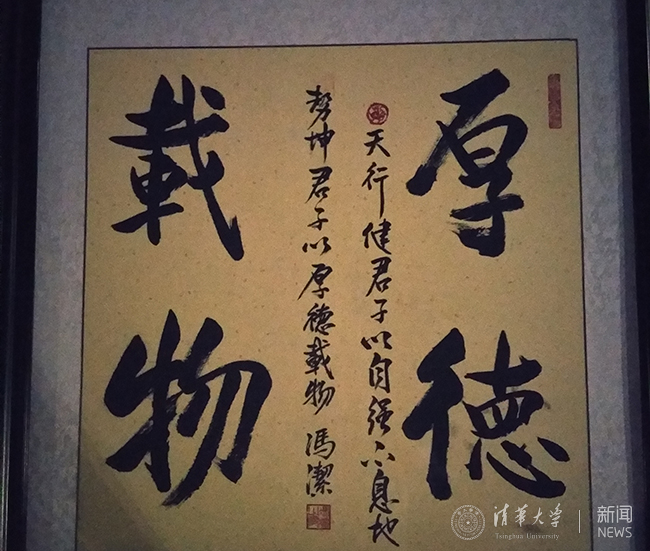 厚德
載物
天行健君子以自强不息地
勢坤君子以厚德載物 馮潔
清華大学
Tsinghua University
新闻
NEWS